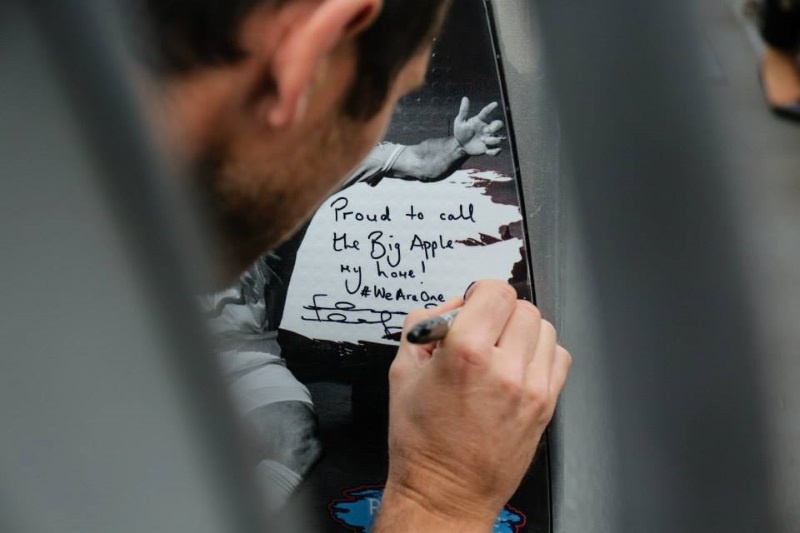 Proud to call
the Big Apple
my home!
#WeAreOne